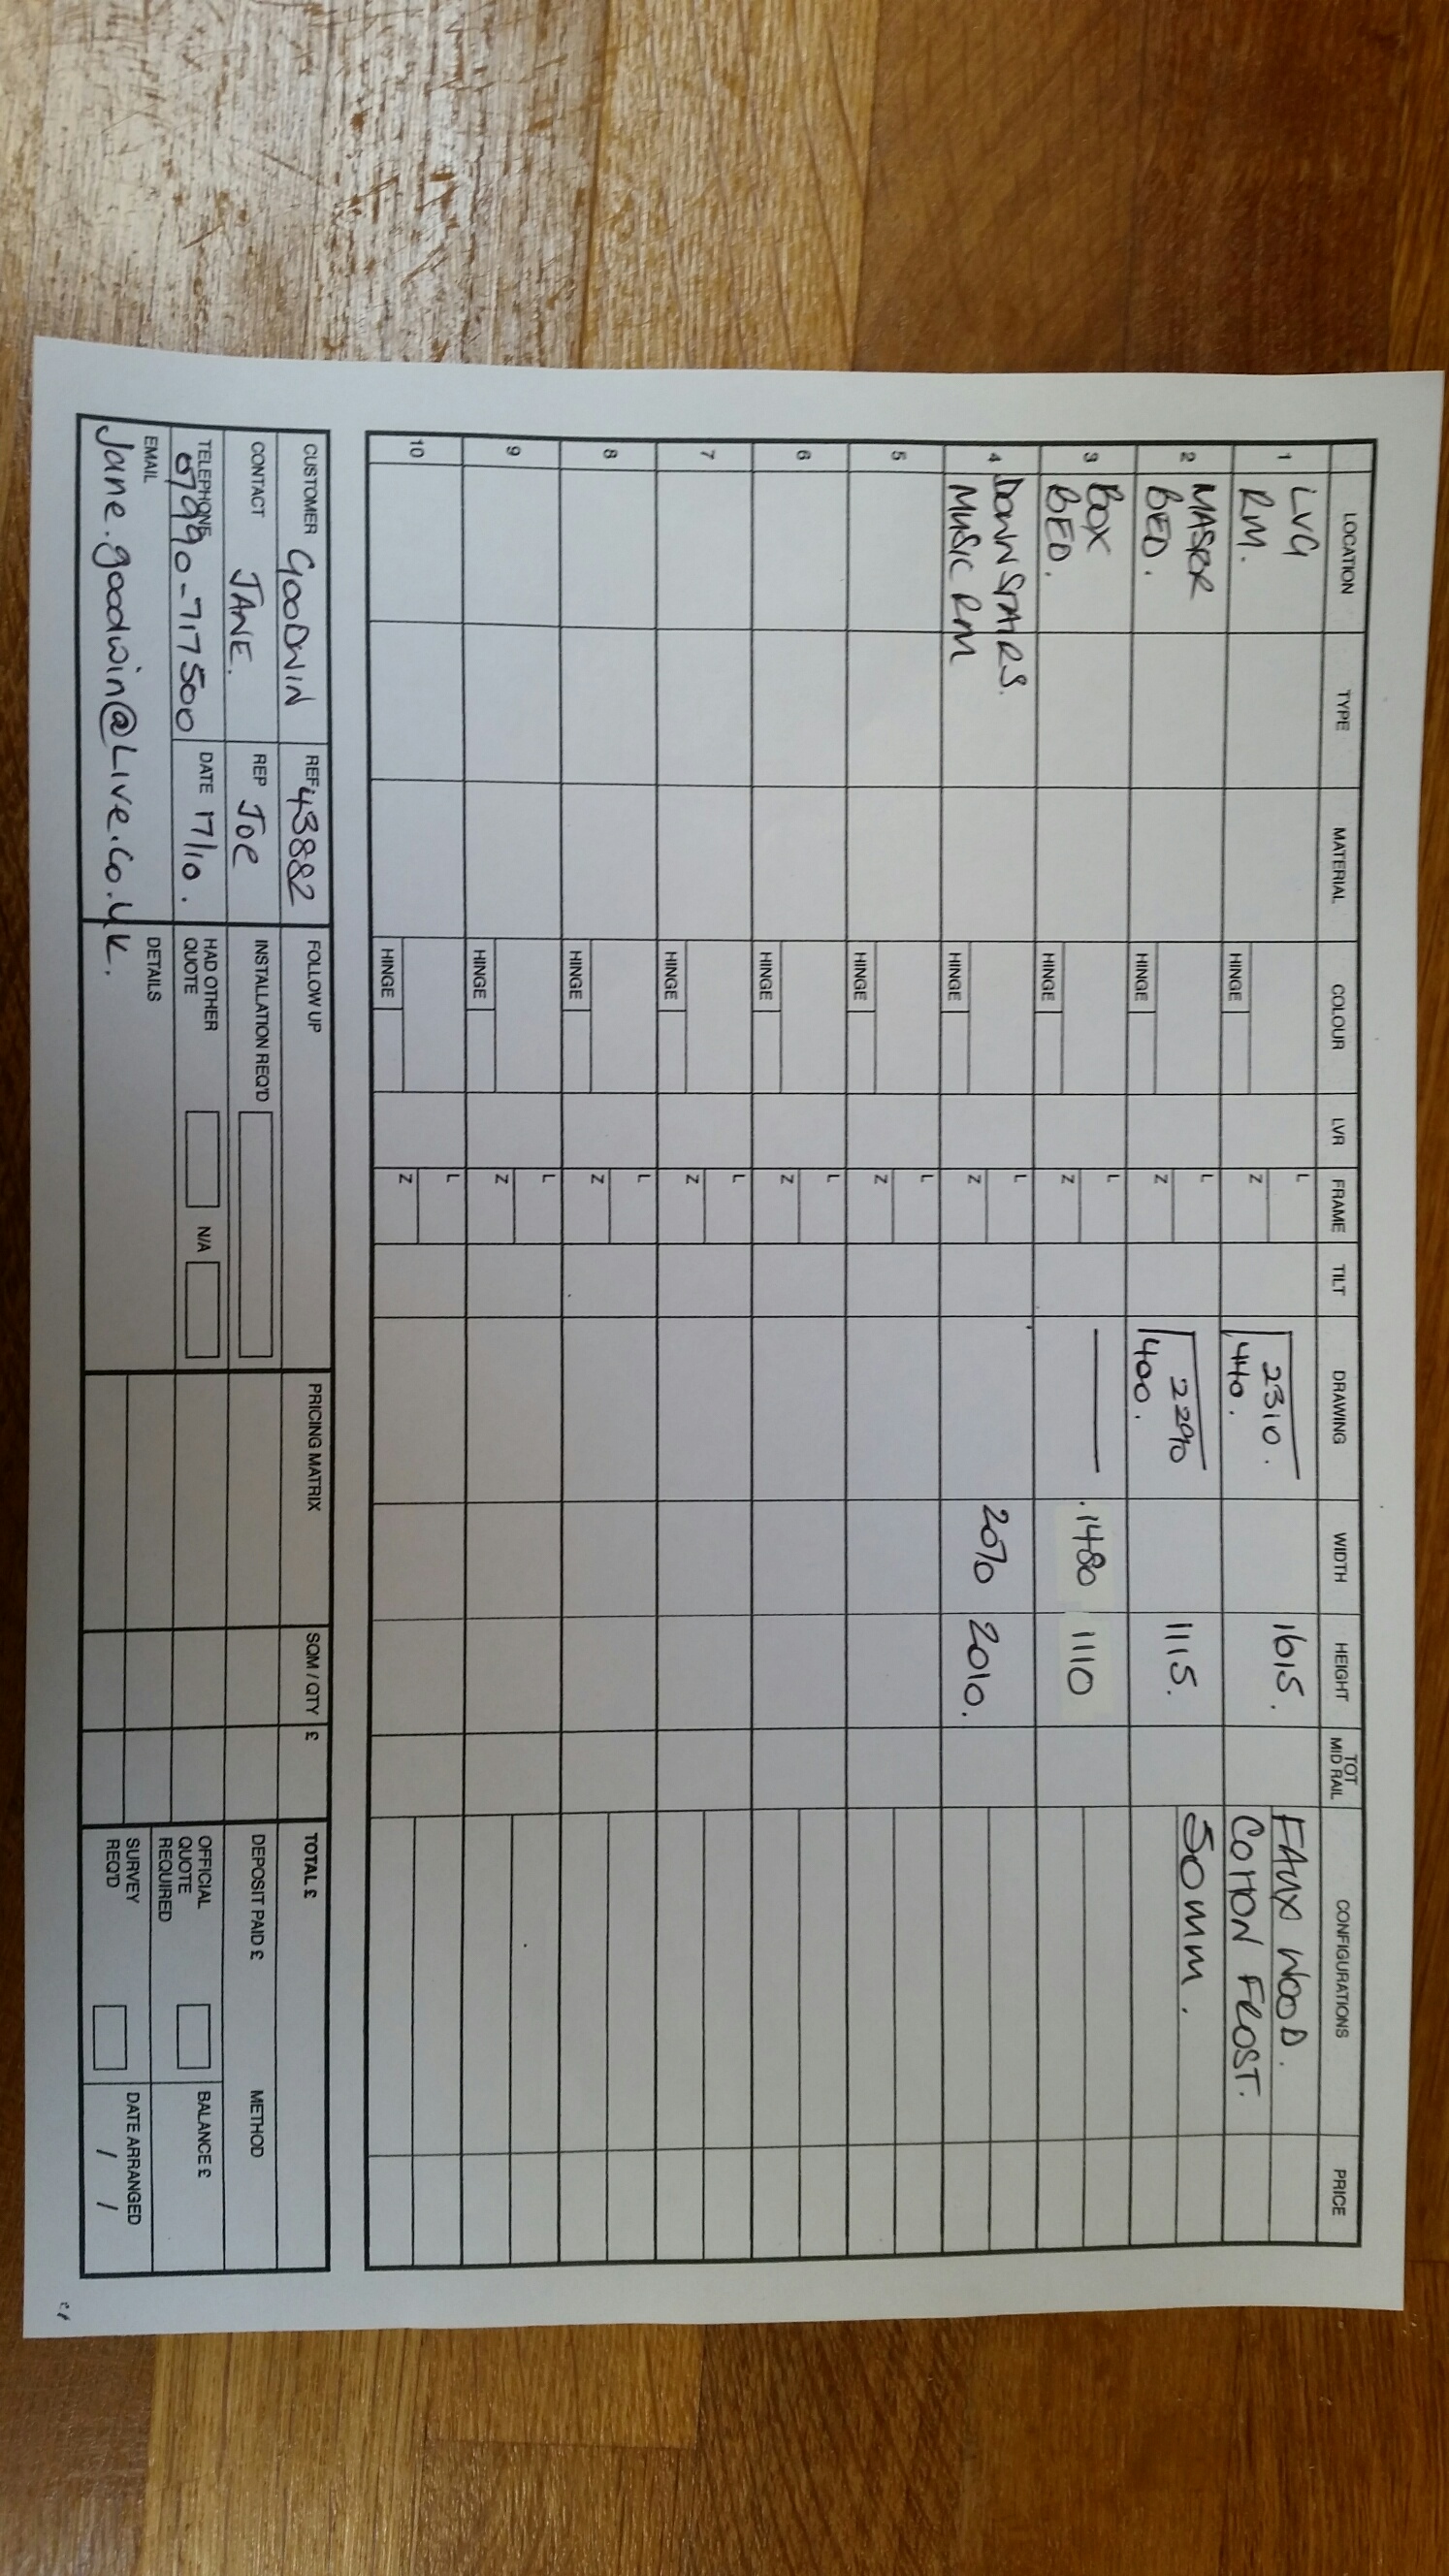 LOCATION TYPE MATERIAL COLOUR LVR FRAME TILT DRAWING WIDTH HEIGHT TOT MID RAIL CONFIGURATIONS PRICE
1 LVG RM. HINGE L Z 2310. 440. 1615. FAUX WOOD. COTTON FROST.
2 MASTER BED. HINGE L Z 2290 400. 1115. 50mm.
3 BOX BED. HINGE L Z 1480 1110
4 DOWNSTAIRS. MUSIC RM HINGE L Z 2070 2010.
5 HINGE L Z
6 HINGE L Z
7 HINGE L Z
8 HINGE L Z
9 HINGE L Z
10 HINGE L Z
CUSTOMER GOODWIN REF 43882 FOLLOW UP PRICING MATRIX SQM / QTY £ TOTAL £
CONTACT JANE. REP Joe INSTALLATION REQ'D DEPOSIT PAID £ METHOD
TELEPHONE 07990-717500 DATE 17/10. HAD OTHER QUOTE N/A OFFICIAL QUOTE REQUIRED BALANCE £
EMAIL Jane.goodwin@Live.co.uk. DETAILS SURVEY REQ'D DATE ARRANGED / /